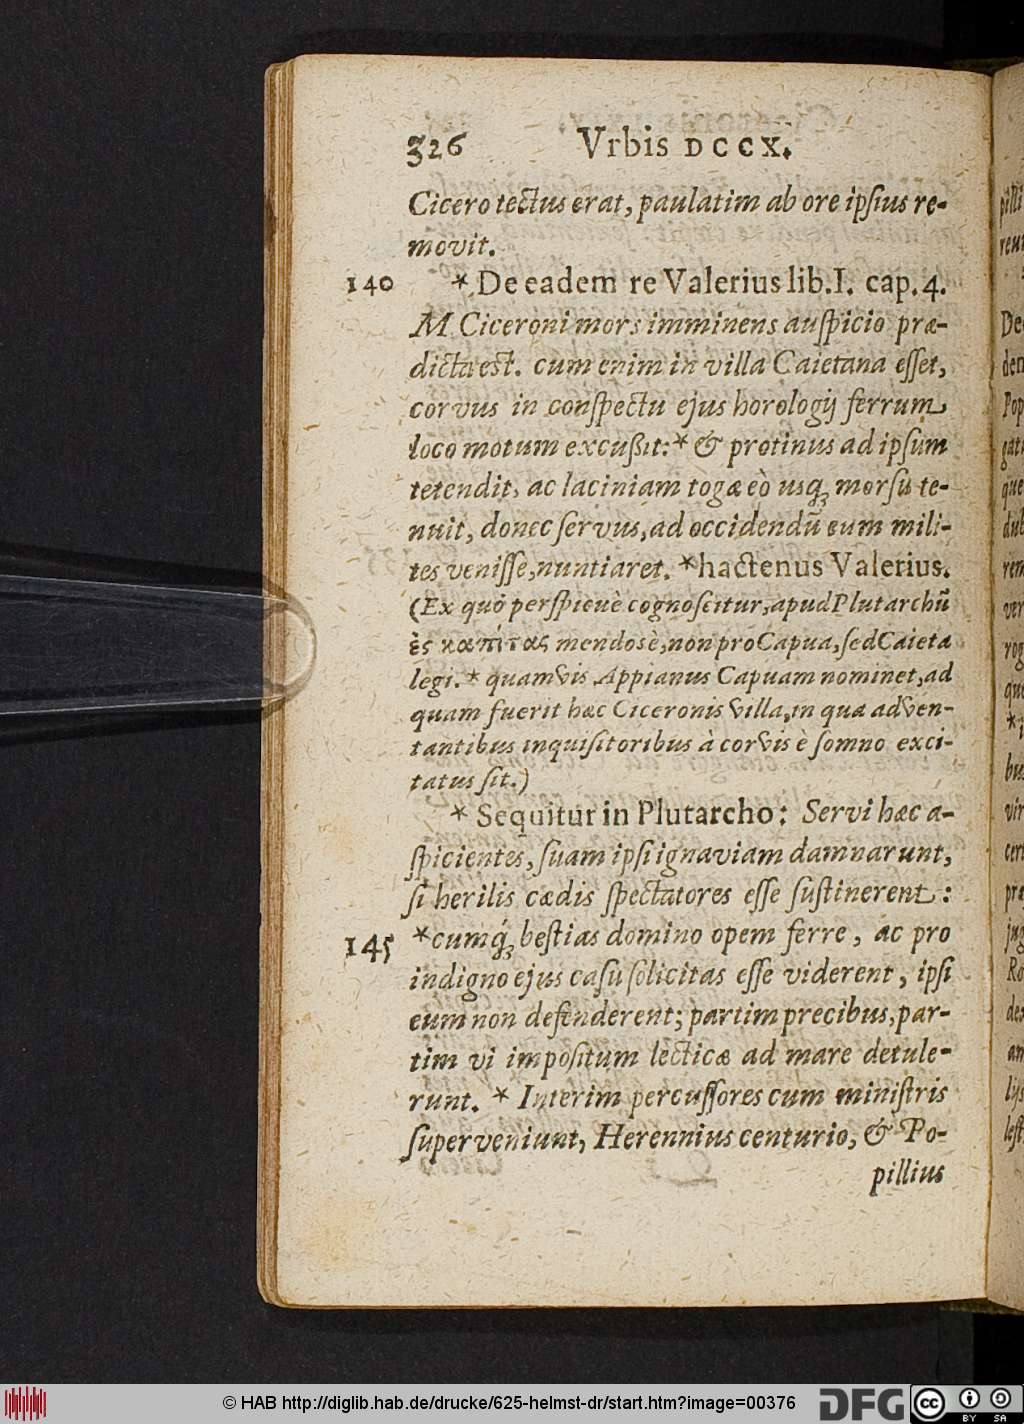 326 Vrbis DCCX.
Cicero tectus erat, paulatim ab ore ipſius re-
movit.
140 * De eadem re Valerius lib. I. cap. 4.
M Ciceroni mors imminens auſpicio præ-
dicta est. cum enim in villa Caietana eſſet,
corvus in conſpectu ejus horologij ferrum
loco motum excußit: * & protinus ad ipſum
tetendit, ac laciniam togæ eò usq; morſu te-
nuit, donec ſervus, ad occidendũ eum mili-
tes veniſſe, nuntiaret. * hactenus Valerius.
(Ex quo perſpicuè cognoſcitur, apud Plutarchũ
ἐς καπίτας mendosè, non pro Capua, ſed Caieta
legi. * quamvis Appianus Capuam nominet, ad
quam fuerit hæc Ciceronis villa, in qua adven-
tantibus inquiſitoribus à corvis è ſomno exci-
tatus ſit.)
* Sequitur in Plutarcho: Servi hæc a-
ſpicientes, ſuam ipſi ignaviam damnarunt,
ſi herilis cædis ſpectatores eſſe ſuſtinerent:
145 * cumq́; beſtias domino opem ferre, ac pro
indigno ejus caſu ſolicitas eſſe viderent, ipſi
eum non defenderent; partim precibus, par-
tim vi impoſitum lecticæ ad mare detule-
runt. * Interim percuſſores cum miniſtris
ſuperveniunt, Herennius centurio, & Po-
pillius
© HAB http://diglib.hab.de/drucke/625-helmst-dr/start.htm?image=00376
DFG
cc BY SA